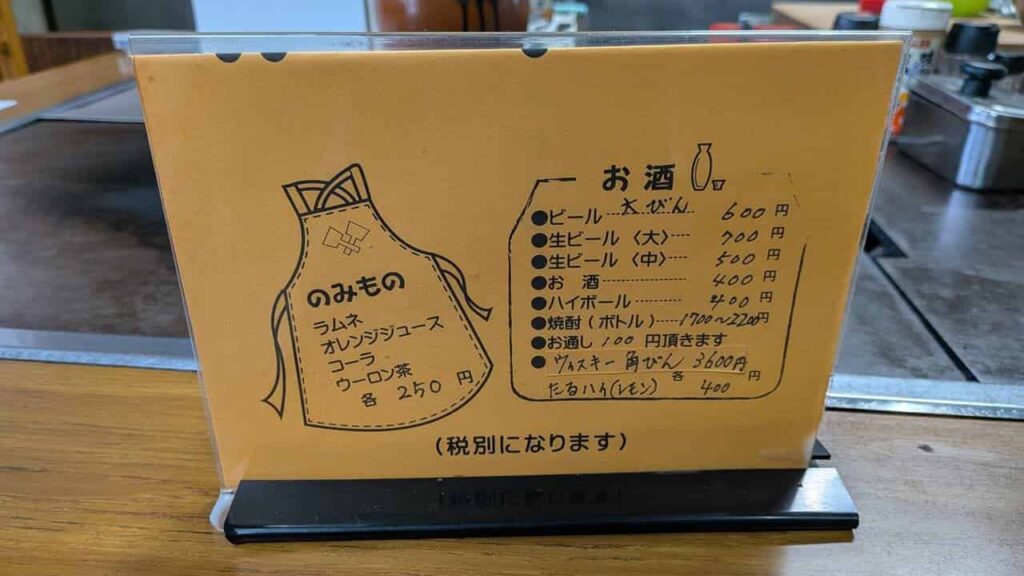 のみもの
ラムネ
オレンジジュース
コーラ
ウーロン茶
各 250 円
お酒
●ビール……大びん 600円
●生ビール〈大〉…… 700円
●生ビール〈中〉…… 500円
●お 酒…… 400円
●ハイボール…… 400円
●焼酎(ボトル)……1700〜2200円
●お通し 100 円頂きます
●ウヰスキー 角びん 3600円
たるハイ(レモン) 各 400 円
(税別になります)